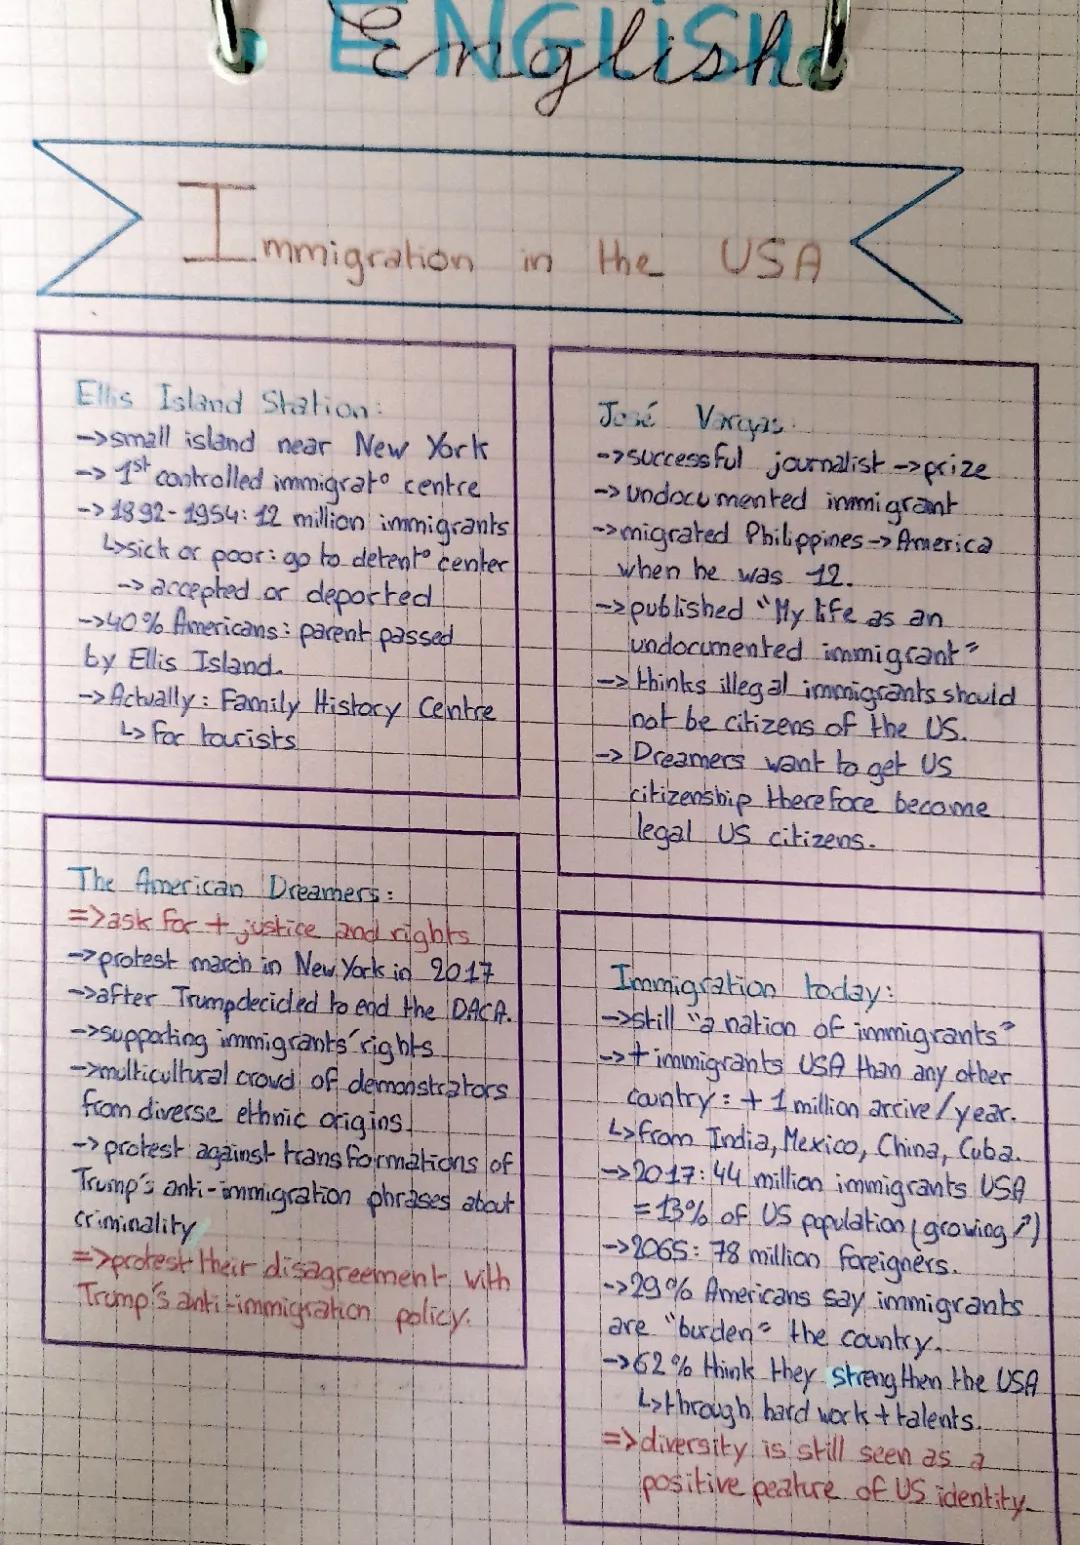 ENGLISH
English
Immigration in the USA
Ellis Island Station:
->small island near New York
-> 1st controlled immigrat° centre
-> 1892-1954: 12 million immigrants
↳sick or poor: go to detent° center
-> accepted or deported
->40% Americans: parent passed
by Ellis Island.
->Actually: Family History Centre
↳ for tourists
José Vargas:
->successful journalist ->prize
->undocumented immigrant
->migrated Philippines->America
when he was 12.
->published "My life as an
undocumented immigrant"
->thinks illegal immigrants should
not be citizens of the US.
-> Dreamers want to get US
citizenship therefore become
legal US citizens.
The American Dreamers:
=>ask for + justice and rights
->protest march in New York in 2017
->after Trump decided to end the DACA.
->supporting immigrants' rights
->multicultural crowd of demonstrators
from diverse ethnic origins.
->protest against transformations of
Trump's anti-immigration phrases about
criminality
=>protest their disagreement with
Trump's anti-immigration policy.
Immigration today:
->still "a nation of immigrants"
->+ immigrants USA than any other
country: + 1 million arrive/year.
↳from India, Mexico, China, Cuba.
->2017: 44 million immigrants USA
=13% of US population (growing ↗)
->2065: 78 million foreigners.
->29% Americans say immigrants
are "burden" the country.
->62% think they strengthen the USA
↳through hard work + talents.
=>diversity is still seen as a
positive peature of US identity.